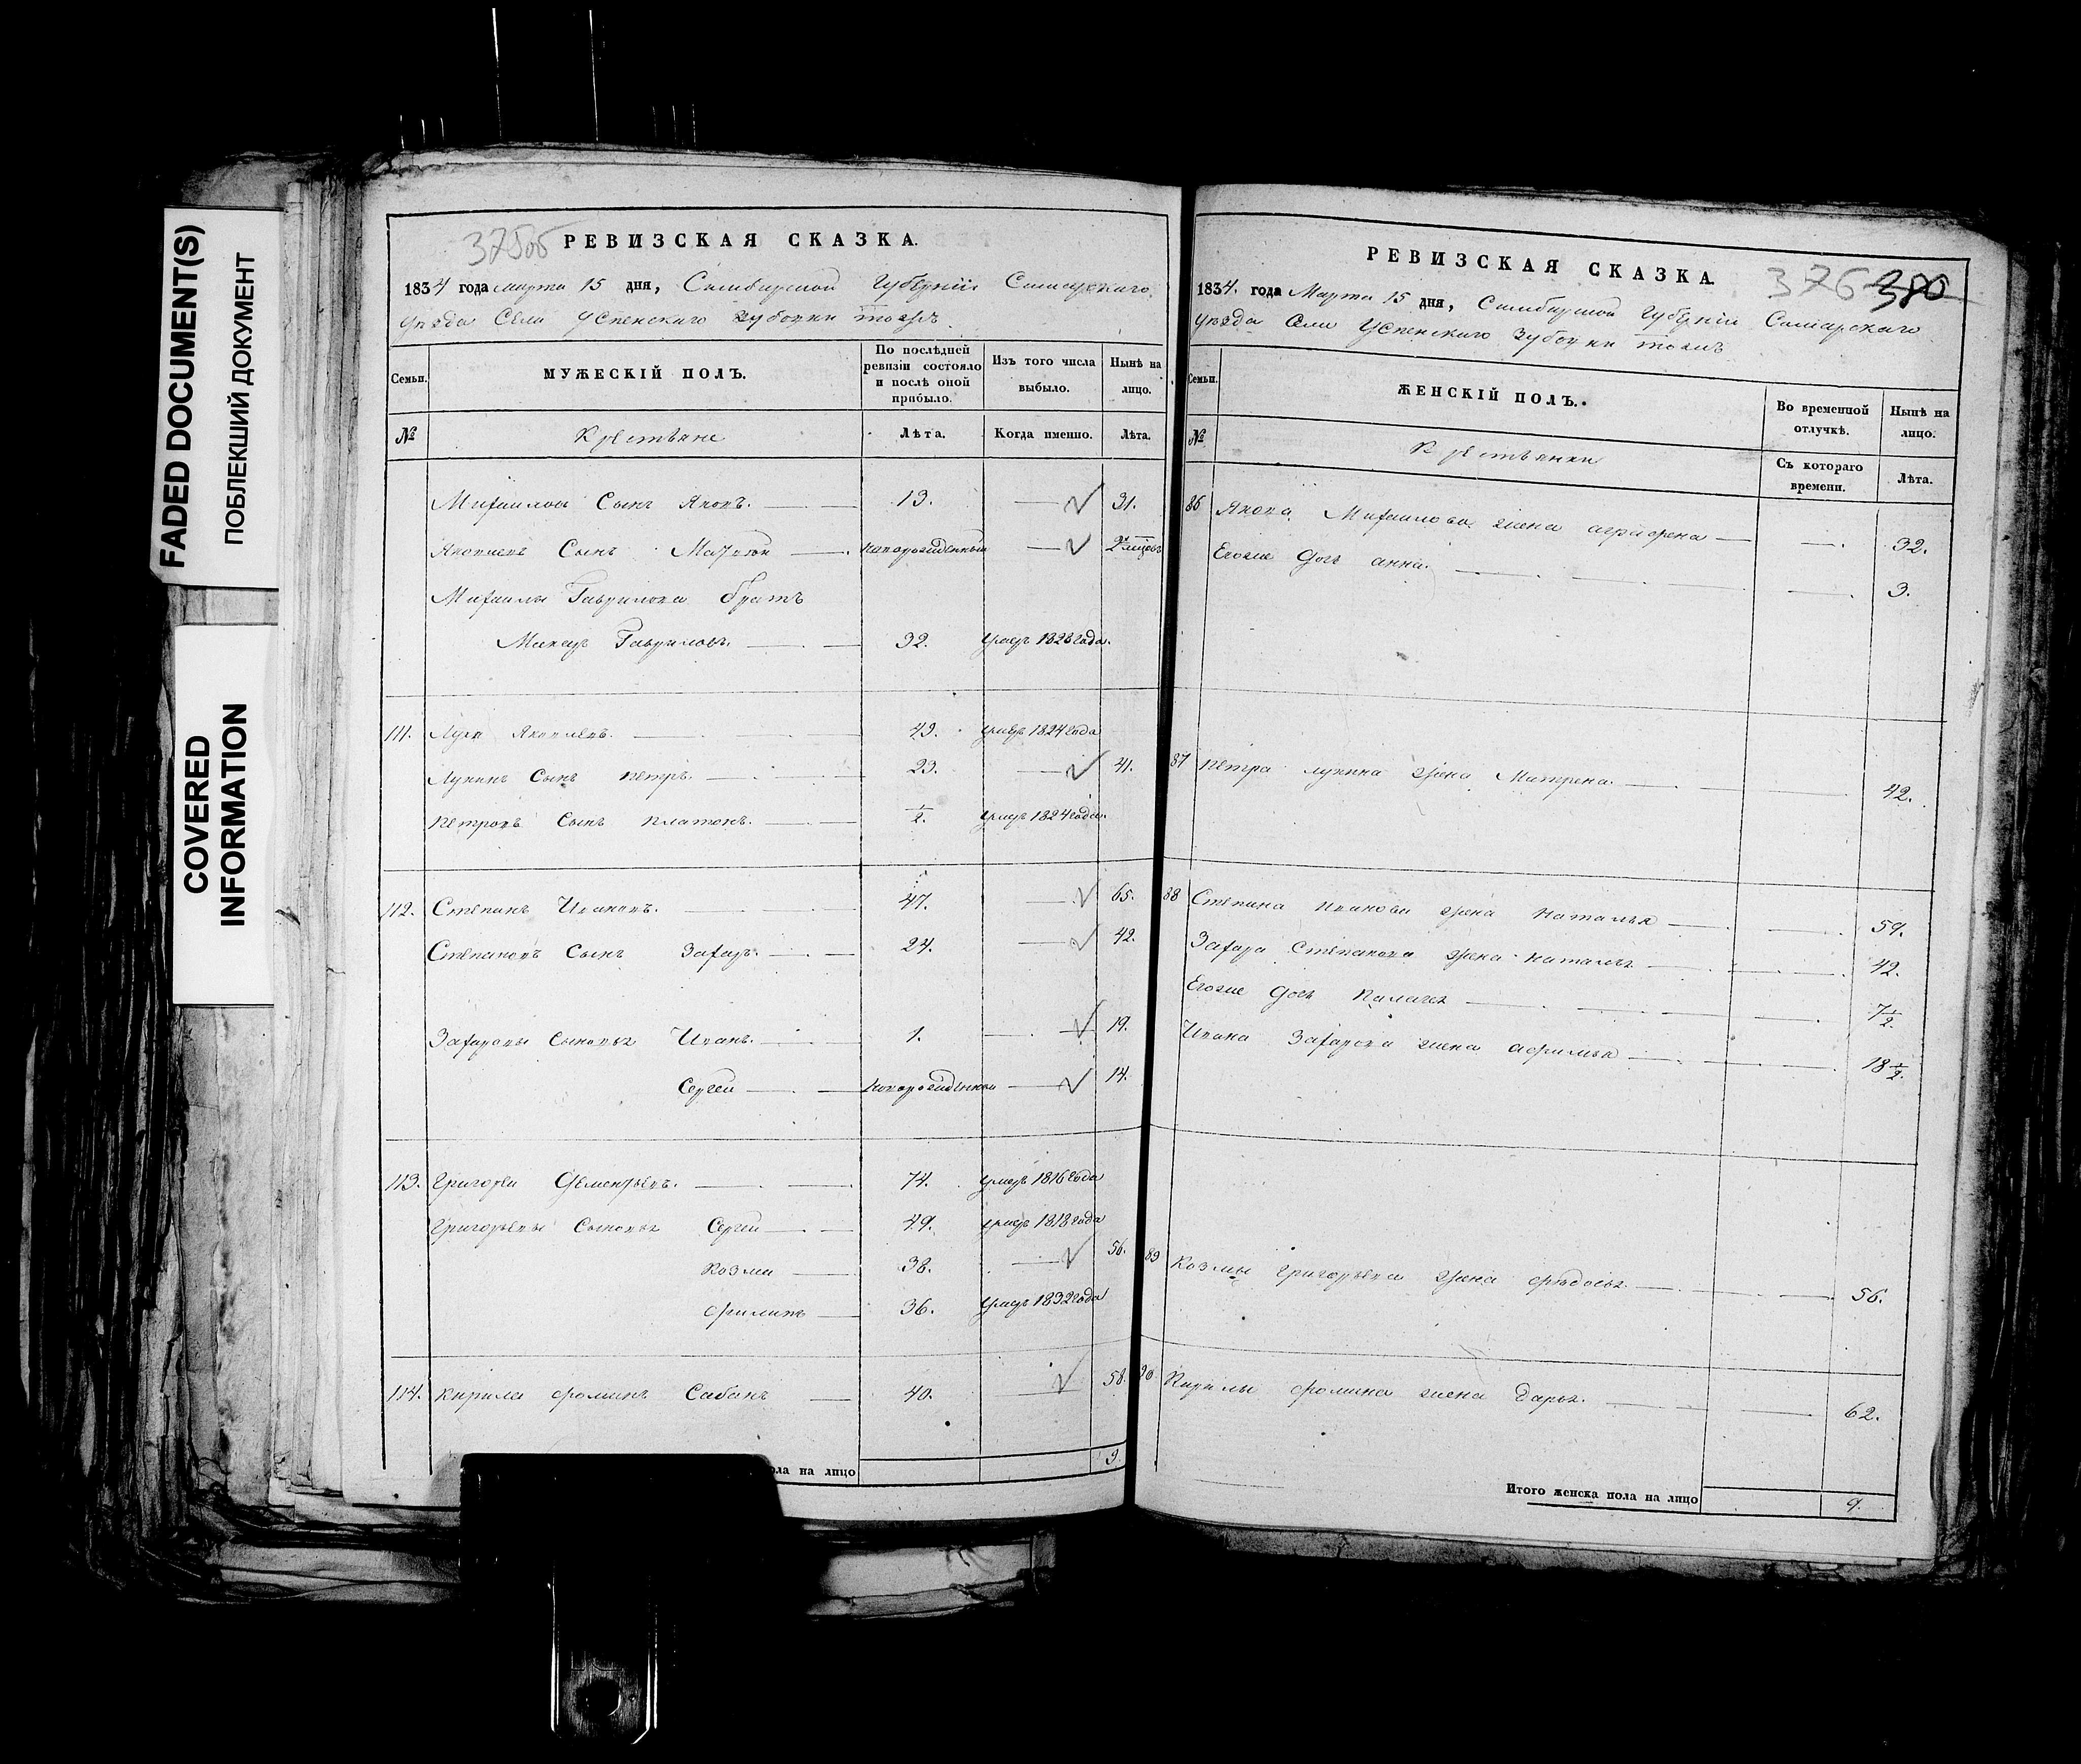 FADED DOCUMENT(S)
ПОБЛЕКШИЙ ДОКУМЕНТ
COVERED
INFORMATION
375об
РЕВИЗСКАЯ СКАЗКА.
1834 года марта 15 дня, Симбирской Губернии Самарского
уезда Села Успенского Зубовки тожъ
Семьи. МУЖЕСКІЙ ПОЛЪ. По послѣдней ревизіи состояло и послѣ оной прибыло. Изъ того числа выбыло. Нынѣ на лицо.
№ Крестьяне Лѣта. Когда именно. Лѣта.
Михаилов Сынъ Яковъ. 13. — 31.
Яковлевъ Сынъ новорожденный —
Михаилы Гаврилова братъ
Макаръ Гавриловъ. 32. умеръ 1828 года.
111. Лука Яковлевъ. 43. умеръ 1824 года
Лукинъ Сынъ Петръ. 23. — 41.
Петровъ Сынъ Платонъ. ½. умеръ 1824 года.
112. Степанъ Ивановъ. 47. — 65.
Степановъ Сынъ Захаръ. 24. — 42.
Захаровы Сыновья Иванъ. 1. — 19.
Сергей новорожденной — 14.
113. Григореи Дементьевъ. 74. умеръ 1816 года
Григорьевы Сыновья Сергей 49. умеръ 1818 года
Козма 38. — 56.
Филипъ 36. умеръ 1832 года
114. Кирила Фоминъ Сабанъ 40. — 58.
ла на лицо 9
376 380
РЕВИЗСКАЯ СКАЗКА.
1834. года Марта 15 дня, Симбирской Губерніи Самарскаго
уезда Села Успенского Зубовки тожъ
Семьи. ЖЕНСКІЙ ПОЛЪ. Во временной отлучкѣ. Нынѣ на лицо.
№ Крестьянки Съ котораго времени. Лѣта.
86 Якова Михаилова жена аграфена — 32.
Егоже дочь анна. — 3.
87 Петра лукина жена Матрена — 42.
88 Степана Иванова жена Наталья — 59.
Захара Степанова жена наталья — 42.
Егоже дочь Палагея — 7½.
Ивана Захарова жена афимья — 18½.
89 Козмы григорьева жена федосья — 56.
90 Кирилы фомина жена Дарья. — 62.
Итого женска пола на лицо 9.